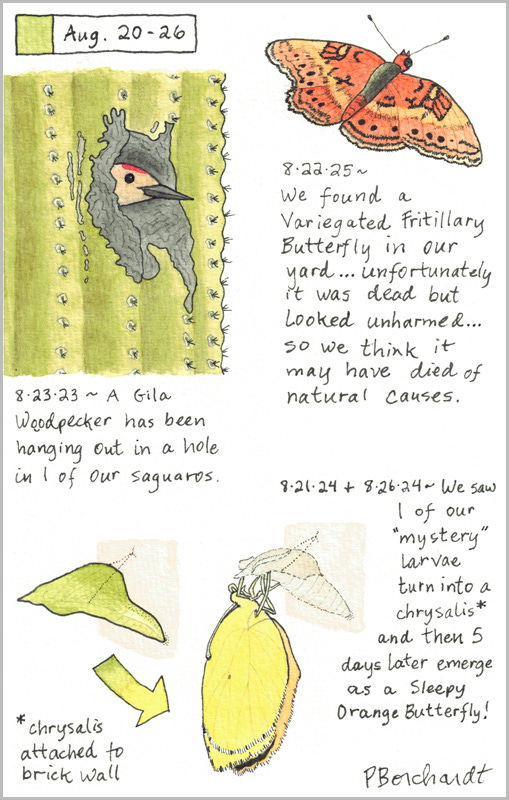 Aug. 20-26
8.22.25~
We found a
Variegated Fritillary
Butterfly in our
yard... unfortunately
it was dead but
looked unharmed...
so we think it
may have died of
natural causes.
8.23.23 ~ A Gila
Woodpecker has been
hanging out in a hole
in 1 of our saguaros.
8.21.24 + 8.26.24~ We saw
1 of our
"mystery"
larvae
turn into a
chrysalis*
and then 5
days later emerge
as a Sleepy
Orange Butterfly!
*chrysalis
attached to
brick wall
PBorchardt